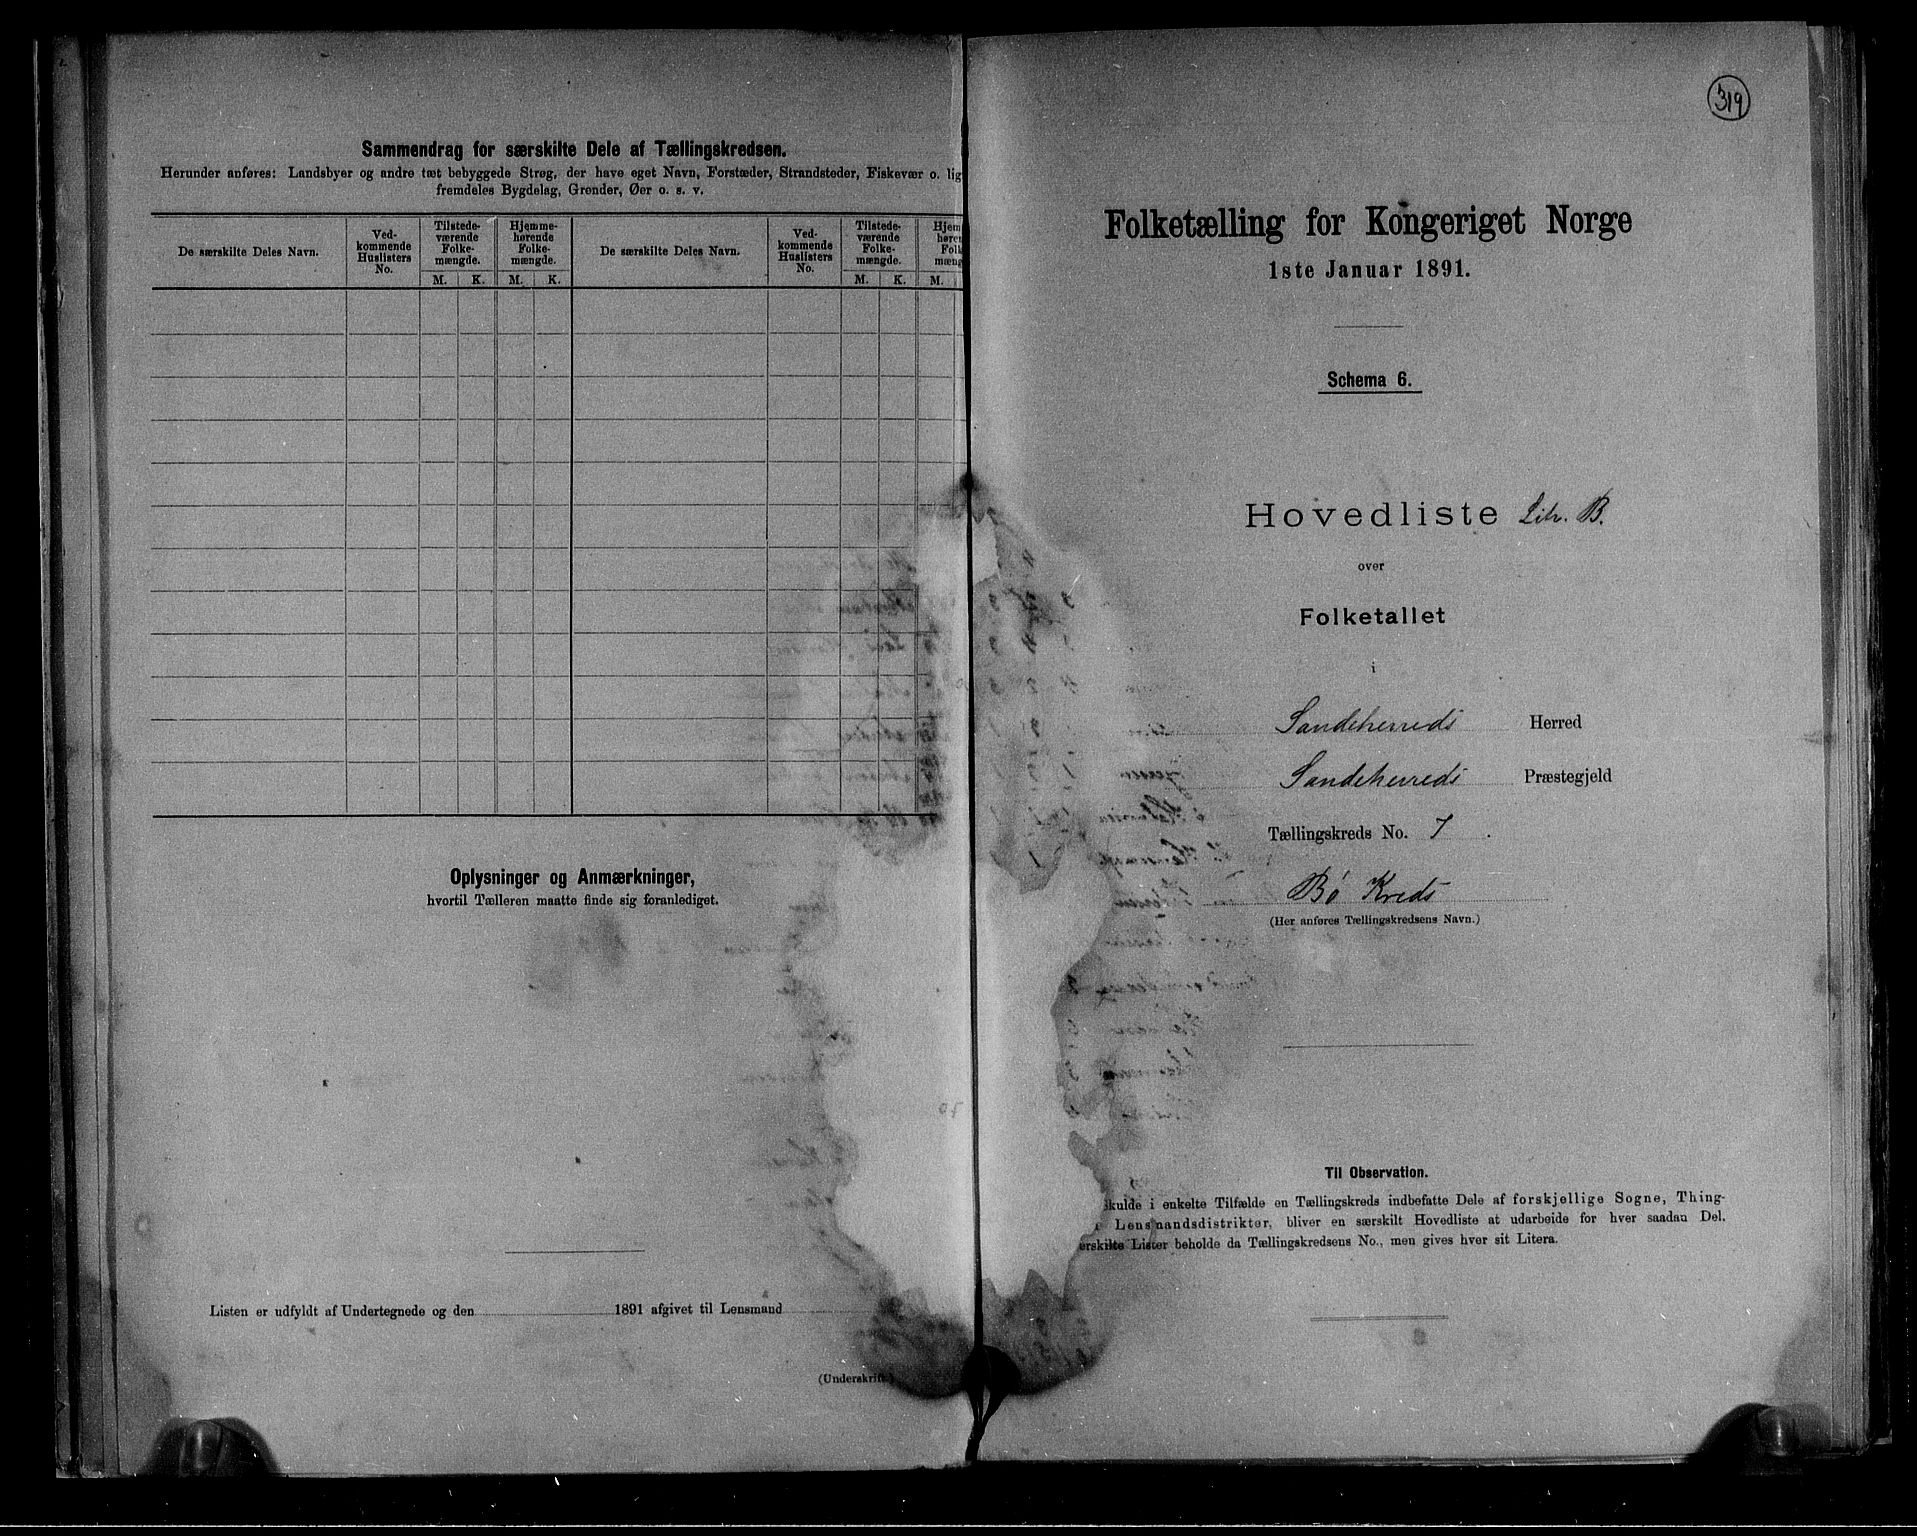 Sammendrag for særskilte Dele af Tællingskredsen.
Herunder anføres: Landsbyer og andre tæt bebyggede Strøg, der have eget Navn, Forstæder, Strandsteder, Fiskevær o. lig
fremdeles Bygdelag, Grender, Øer o. s. v.
De særskilte Deles Navn.
Ved-
kommende
Huslisters
No.
Tilstede-
værende
Folke-
mængde.
Hjemme-
hørende
Folke-
mængde.
De særskilte Deles Navn.
Ved-
kommende
Huslisters
No.
Tilstede-
værende
Folke-
mængde.
Hjem
høre
Folk
mæng
M. K. M. K. M. K. M.
Oplysninger og Anmærkninger,
hvortil Tælleren maatte finde sig foranlediget.
Listen er udfyldt af Undertegnede og den 1891 afgivet til Lensmand
(Underskrift.)
319
Folketælling for Kongeriget Norge
1ste Januar 1891.
Schema 6.
Hovedliste Litr. B.
over
Folketallet
i
Sandeherreds Herred
Sandeherreds Præstegjeld
Tællingskreds No. 7.
Bø Kreds
(Her anføres Tællingskredsens Navn.)
Til Observation.
Skulde i enkelte Tilfælde en Tællingskreds indbefatte Dele af forskjellige Sogne, Thing-
Lensmandsdistrikter, bliver en særskilt Hovedliste at udarbeide for hver saadan Del.
ærskilte Lister beholde da Tællingskredsens No., men gives hver sit Litera.